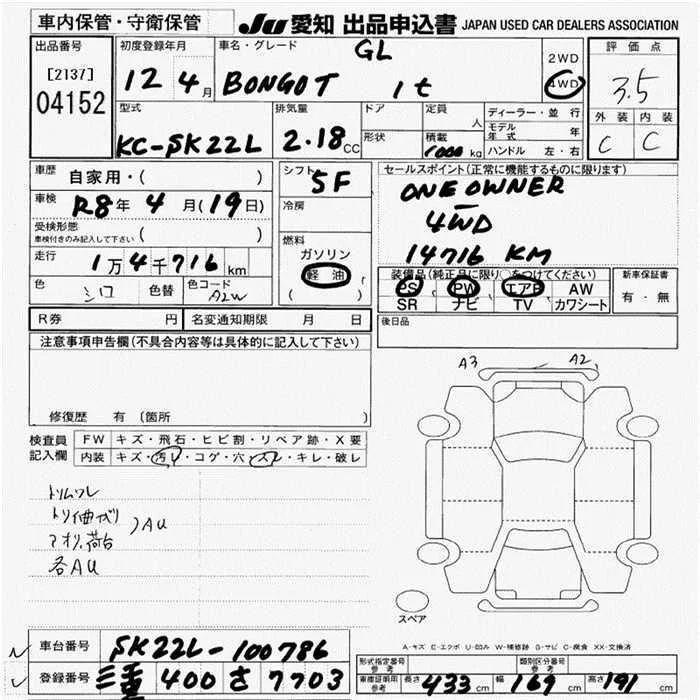 車内保管・守衛保管
JU 愛知 出品申込書 JAPAN USED CAR DEALERS ASSOCIATION
出品番号
[2137]
04152
初度登録年月
12 4月
車名・グレード
GL
BONGO T 1t
2WD
4WD
評価点
3.5
外装 内装
C C
型式
KC-SK22L
排気量
2.18 CC
ドア
形状
定員
人
積載
1000 kg
ディーラー・並行
モデル年式 年
ハンドル 左・右
車歴
自家用・( )
車検
R8年 4月(19日)
受検形態
車検付きのみ記入して下さい ( )
走行
1万4千716km
色
シロ
色替
色コード
A2W
シフト
5F
冷房
燃料
ガソリン
軽油
( )
セールスポイント(正常に機能するものに限ります)
ONE OWNER
4WD
14716 KM
装備品(純正品に限り○をつけてください)
PS PW エアB AW
SR ナビ TV カワシート
新車保証書
有・無
後日品
R券 円
名変通知期限 月 日
注意事項申告欄(不具合内容等は具体的に記入して下さい)
修復歴 有(箇所 )
検査員記入欄
FW キズ・飛石・ヒビ割・リペア跡・X要
内装 キズ・汚レ・コゲ・穴・スレ・キレ・破レ
AU
アオリ、荷台
各AU
A3 A2
スペア
A-キズ E-エクボ U-凹み W-補修跡 S-サビ C-腐食 XX-交換済
車台番号
SK22L-100786
登録番号
三重 400 さ 7703
形式指定番号
参考
類別区分番号
参考
車庫証明用
参考
長さ 433 cm 幅 169 cm 高さ 191 cm